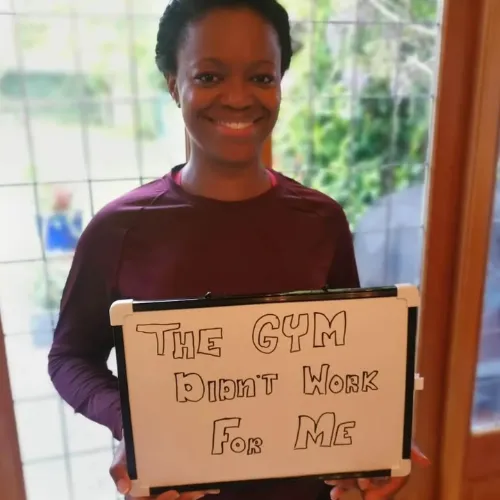 THE GYM
DIDN'T WORK
FOR ME